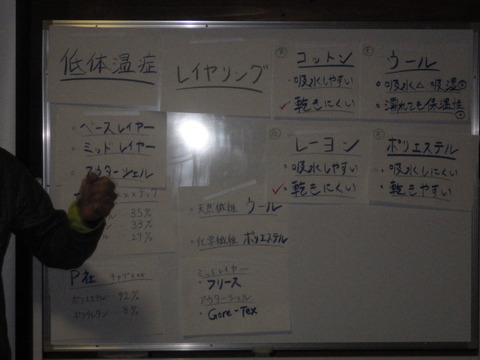 低体温症
レイヤリング
コットン
・吸水しやすい
✓乾きにくい
ウール
・吸水△ 吸湿
・濡れても保温性
・ベースレイヤー
・ミッドレイヤー
・アウターシェル
レーヨン
・吸水しやすい
✓乾きにくい
ポリエステル
・吸水しにくい
・乾きやすい
35%
33%
・天然繊維 ウール
・化学繊維 ポリエステル
P社
ポリエステル 92%
ポリウレタン 8%
ミッドレイヤー
・フリース
アウターシェル
・Gore-Tex